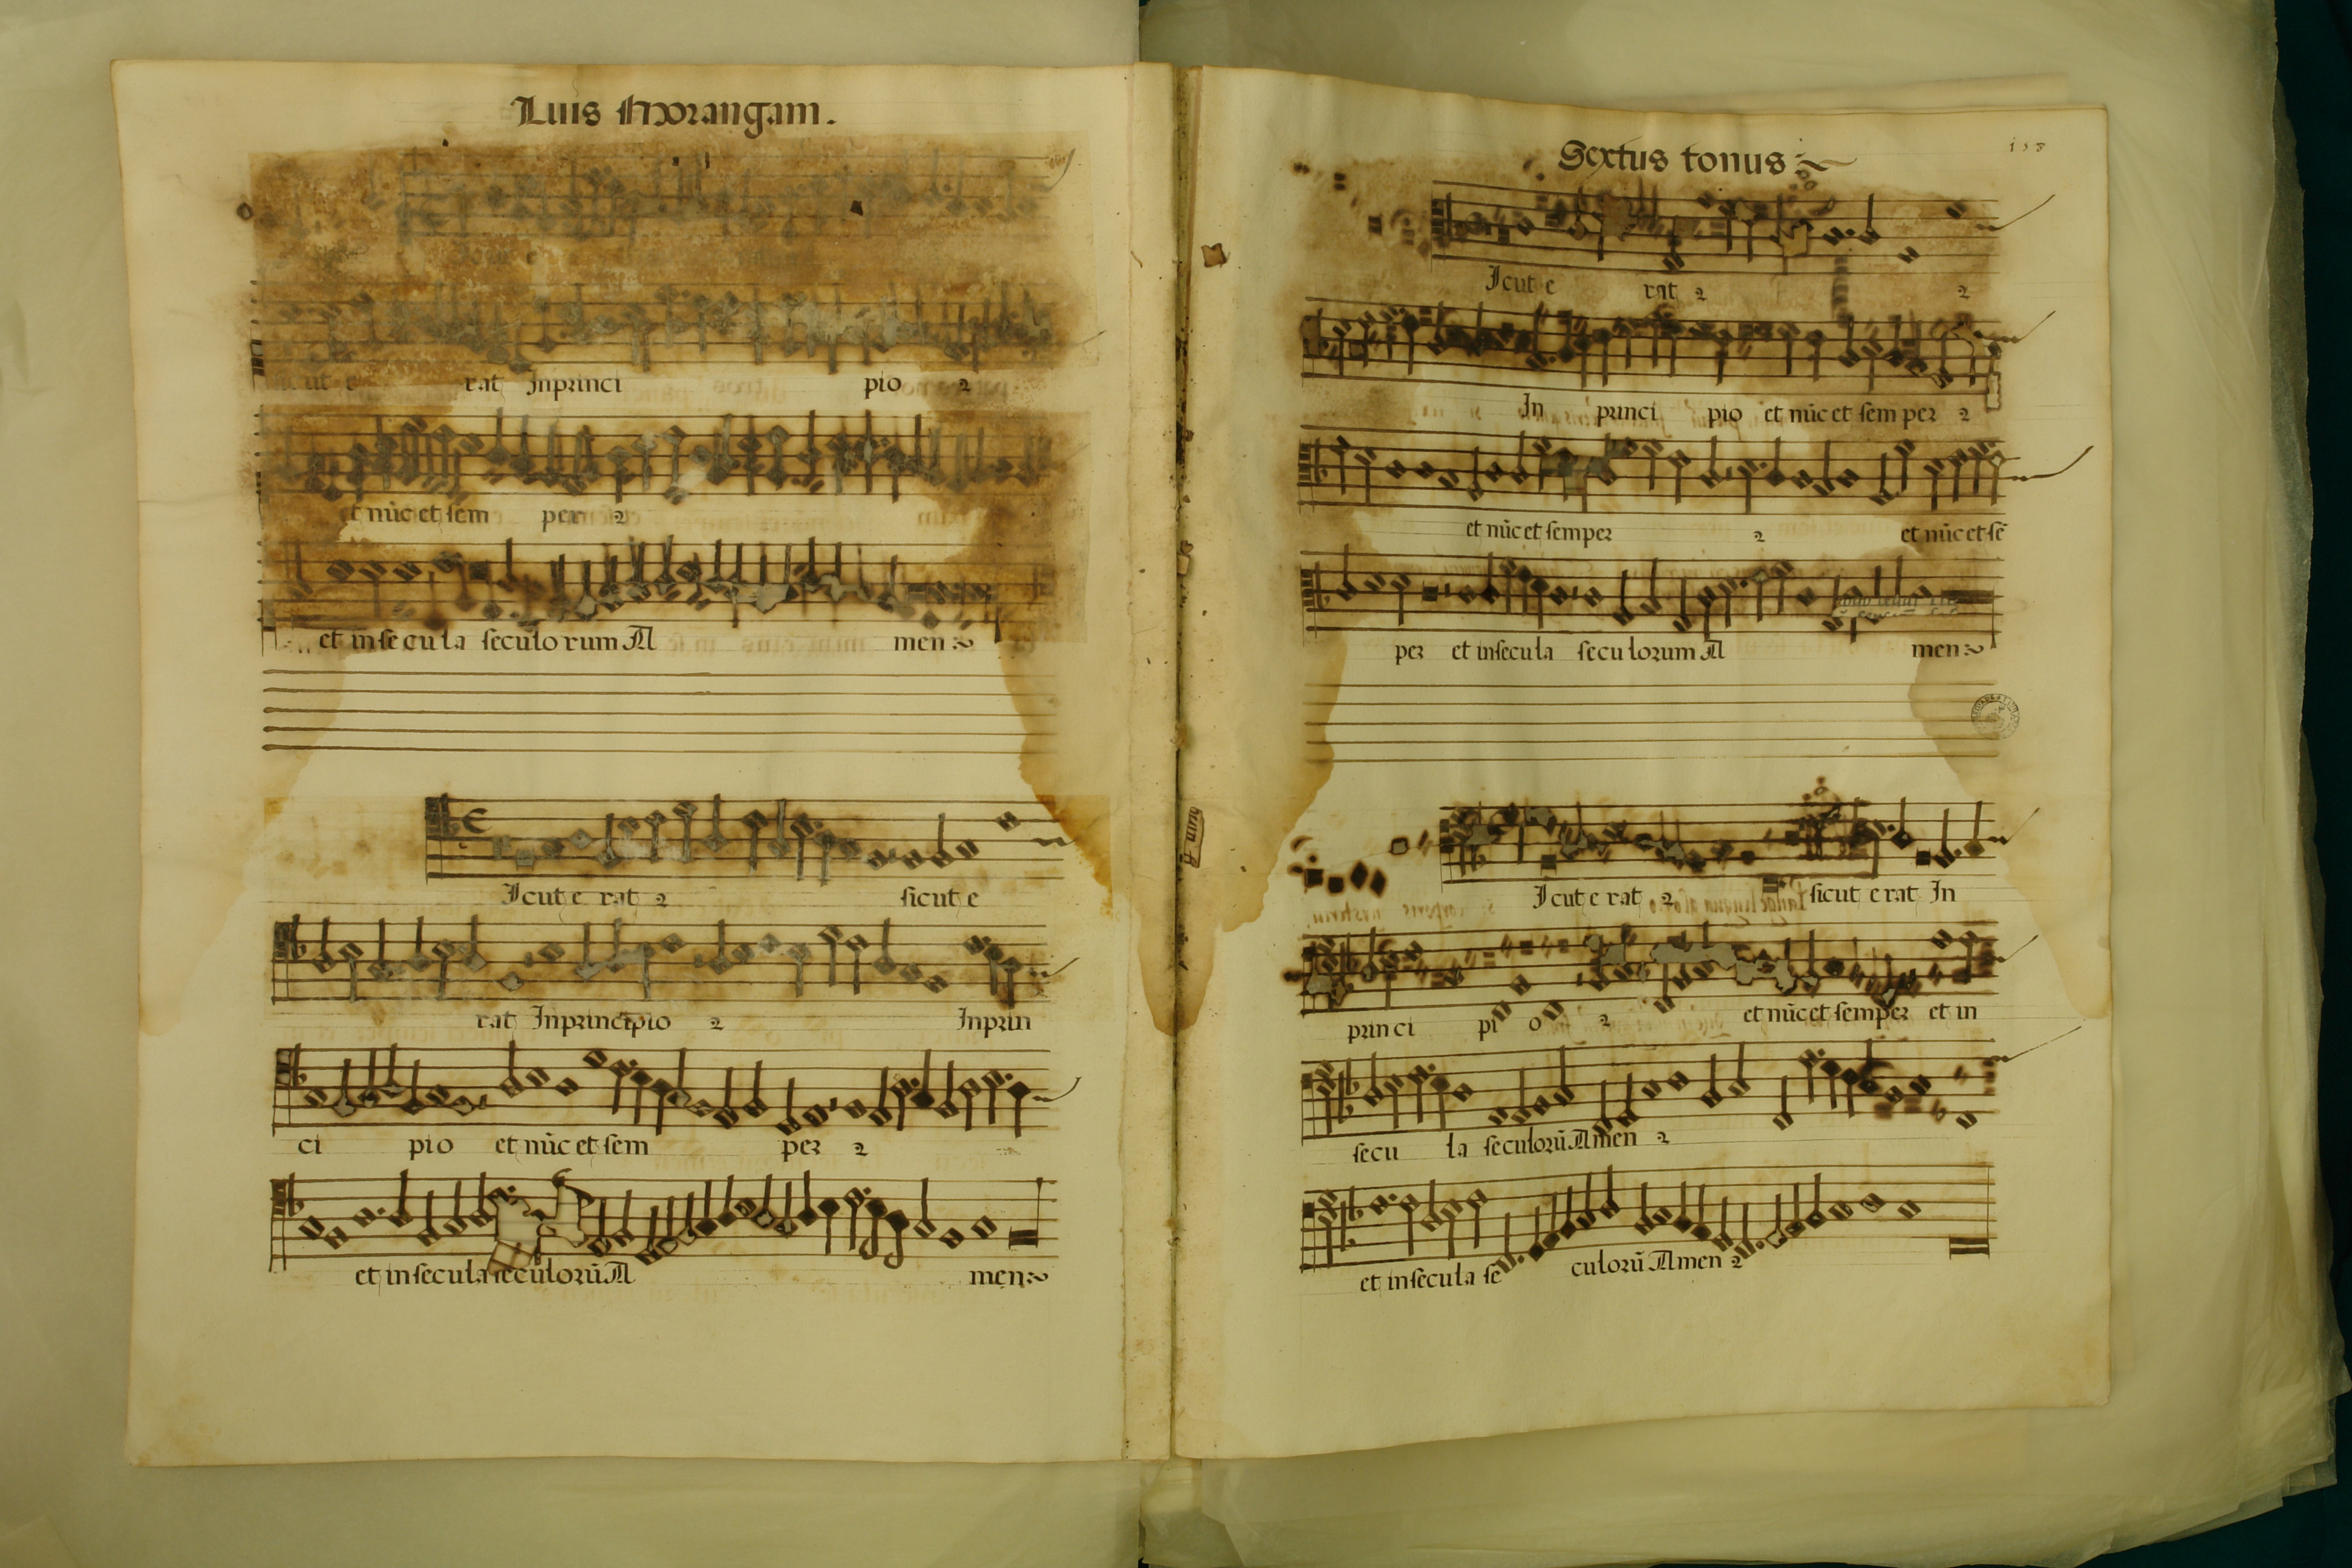 Luis Morangam.
rat Inprinci pio 2
et nũc et sem per 2
et insecula seculorum A men
Icut e rat 2 sicut e
rat Inprincipio 2 Inprin
ci pio et nũc et sem per 2
et insecula seculorũ A men
Sextus tonus
Icut e rat 2 2
In princi pio et nũc et semper 2
et nũc et semper 2 et nũc et sẽ
per et insecula seculorum A men
Icut e rat 2 sicut e rat In
princi pi o 2 et nũc et semper et in
secu la seculorũ Amen 2
et insecula se culorũ Amen 2